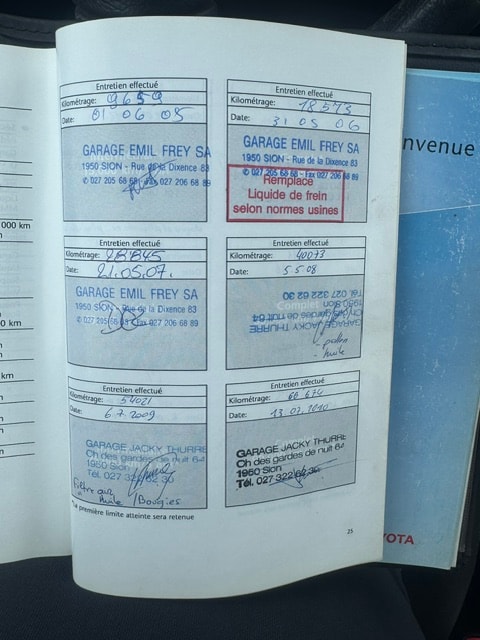 Entretien effectué
Kilométrage: 9659
Date: 01 06 05
GARAGE EMIL FREY SA
1950 SION - Rue de la Dixence 83
✆ 027 205 68 68 - Fax 027 206 68 89
Entretien effectué
Kilométrage: 18573
Date: 31 05 06
GARAGE EMIL FREY SA
1950 SION - Rue de la Dixence 83
✆ 027 205 68 68 - Fax 027 206 68 89
Remplacé
Liquide de frein
selon normes usines
Entretien effectué
Kilométrage: 28845
Date: 21.05.07.
GARAGE EMIL FREY SA
1950 SION - Rue de la Dixence 83
✆ 027 205 68 68 - Fax 027 206 68 89
Entretien effectué
Kilométrage: 40073
Date: 5 5 08
GARAGE JACKY THURRE
Ch des gardes de nuit 64
1950 Sion
Tél. 027 322 62 30
- pollen
- huile
Entretien effectué
Kilométrage: 54021
Date: 6 7 2009
GARAGE JACKY THURRE
Ch des gardes de nuit 64
1950 Sion
Tél. 027 322 62 30
Filtre air
Huile / Bougies
Entretien effectué
Kilométrage: 68 676
Date: 13.07.2010
GARAGE JACKY THURRE
Ch des gardes de nuit 64
1950 Sion
Tél. 027 322 62 30
*La première limite atteinte sera retenue
25
000 km
0 km
km
nvenue
OTA